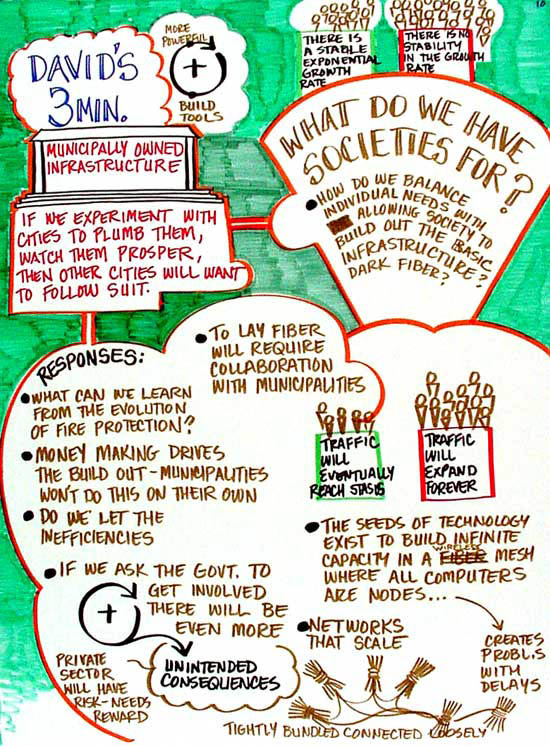 10
DAVID'S
3 MIN.
MORE
POWERFUL
+
BUILD
TOOLS
THERE IS
A STABLE
EXPONENTIAL
GROWTH
RATE
THERE IS NO
STABILITY
IN THE GROWTH
RATE
MUNICIPALLY OWNED
INFRASTRUCTURE
IF WE EXPERIMENT WITH
CITIES TO PLUMB THEM,
WATCH THEM PROSPER,
THEN OTHER CITIES WILL WANT
TO FOLLOW SUIT.
WHAT DO WE HAVE
SOCIETIES FOR?
• HOW DO WE BALANCE
INDIVIDUAL NEEDS WITH
ALLOWING SOCIETY TO
BUILD OUT THE BASIC
INFRASTRUCTURE?
DARK FIBER?
RESPONSES:
• TO LAY FIBER
WILL REQUIRE
COLLABORATION
WITH MUNICIPALITIES
• WHAT CAN WE LEARN
FROM THE EVOLUTION
OF FIRE PROTECTION?
• MONEY MAKING DRIVES
THE BUILD OUT - MUNICIPALITIES
WON'T DO THIS ON THEIR OWN
• DO WE LET THE
INEFFICIENCIES
• IF WE ASK THE GOVT. TO
GET INVOLVED
THERE WILL BE
EVEN MORE
+
UNINTENDED
CONSEQUENCES
PRIVATE
SECTOR
WILL HAVE
RISK-NEEDS
REWARD
TRAFFIC
WILL
EVENTUALLY
REACH STASIS
TRAFFIC
WILL
EXPAND
FOREVER
• THE SEEDS OF TECHNOLOGY
EXIST TO BUILD INFINITE
CAPACITY IN A FIBER WIRELESS MESH
WHERE ALL COMPUTERS
ARE NODES...
CREATES
PROBL.S
WITH
DELAYS
• NETWORKS
THAT SCALE
TIGHTLY BUNDLED CONNECTED LOOSELY